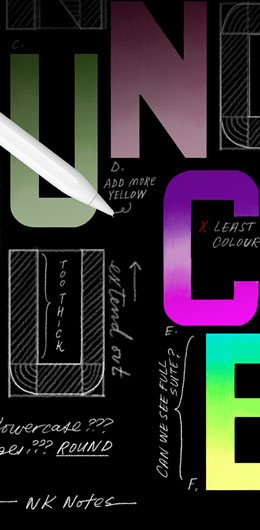 N
C.
U
D.
ADD MORE
YELLOW
C
X LEAST
COLOUR
U
TOO THICK
extend out
E.
CAN WE SEE FULL
SUITE?
E
F.
lowercase ???
??? ROUND
NK Notes